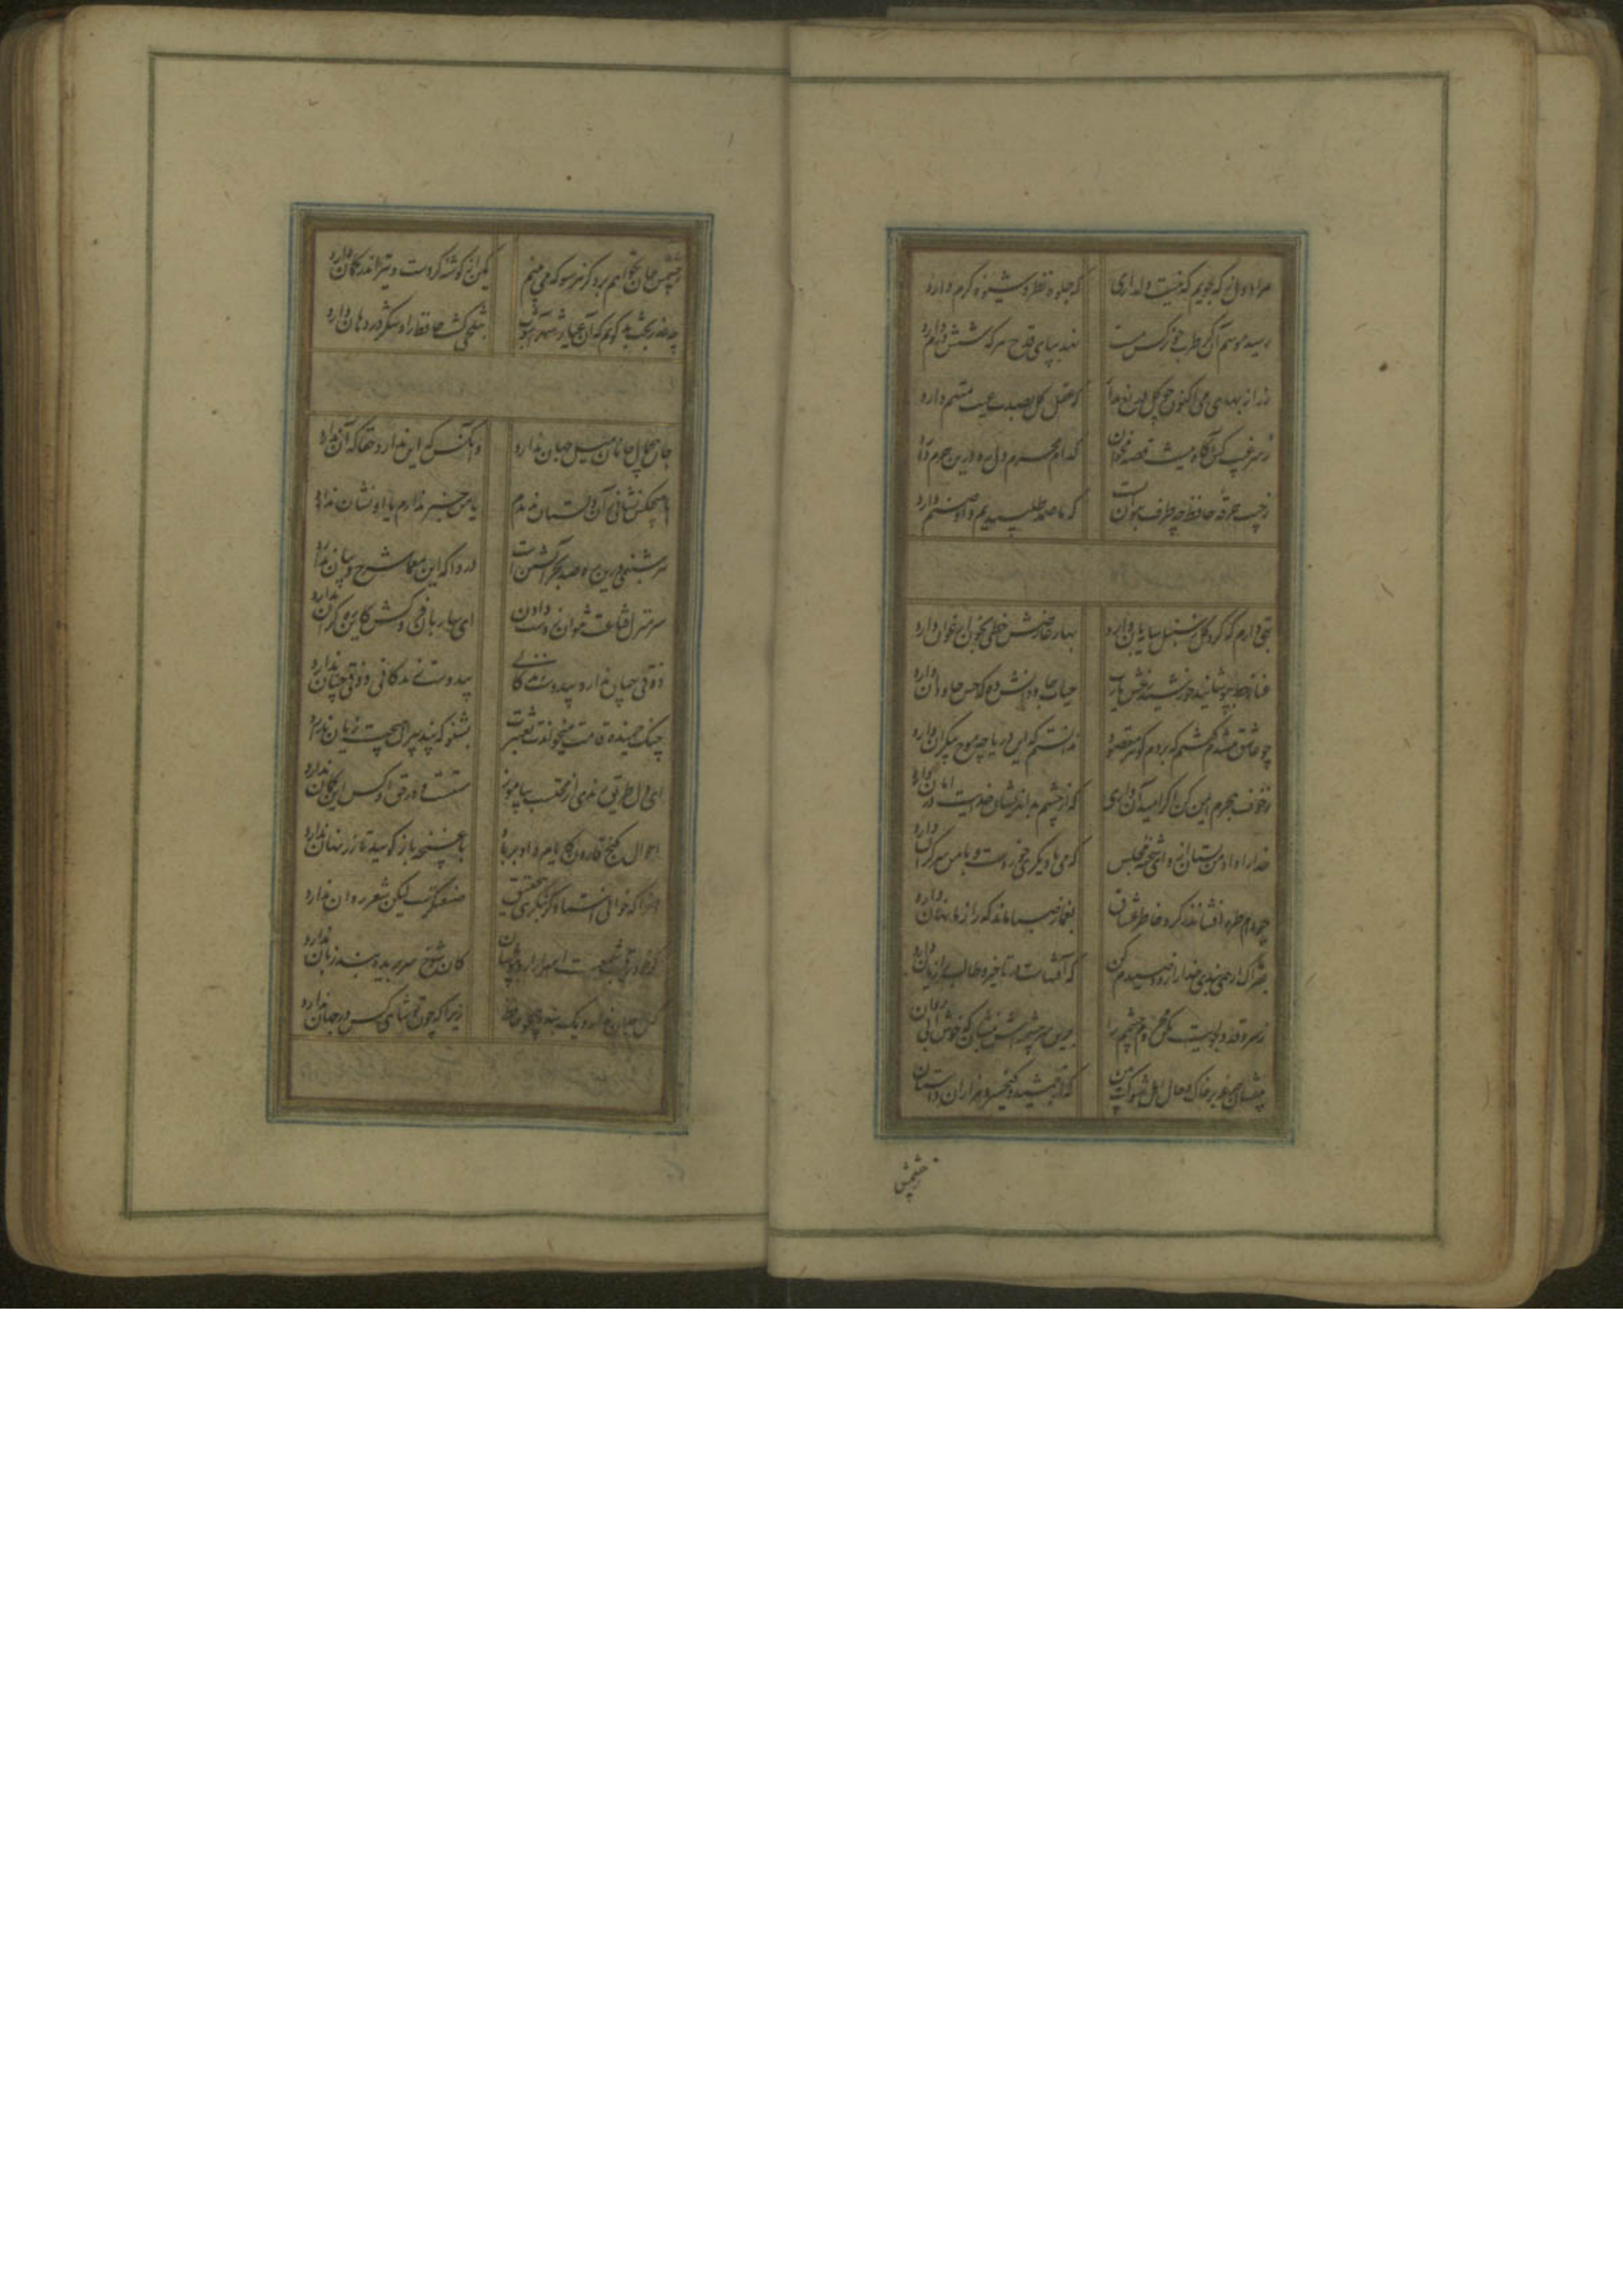 مراد دل ز که جویم که نیست دلداری که جلوه نظر و شیوه کرم دارد
رسید موسم آن کز طرب چو نرکس مست نهد بپای قدح هر که شش درم دارد
زر از بهای می اکنون چو کل دریغ مدار که عقل کل بصدت عیب متهم دارد
ز سر غیب کس آکاه نیست قصه مخوان کدام محرم دل ره درین حرم دارد
ز جیب خرقه حافظ چه طرف بتوان بست که ما صمد طلبیدیم و او صنم دارد
بتی دارم که کرد کل ز سنبل سایبان دارد بهار عارضش خطی بخون ارغوان دارد
غبار خط بپوشانید خورشید رخش یارب حیات جاودانش ده که حسن جاودان دارد
چو عاشق میشدم کفتم که بردم کوهر مقصود ندانستم که این دریا چه موج بیکران دارد
ز خوف هجرم ایمن کن اکر امید آن داری که از چشم بد اندیشان خدایت در امان دارد
خدا را داد من بستان ازو ای شحنه مجلس که می با دیکری خوردست و با من سر کران دارد
چو دام طره افشاند ز کرد خاطر عشاق بغماز صبا ماند که راز ما نهان دارد
بفتراک ار همی بندی خدا را زود صیدم کن که آفتهاست در تاخیر و طالب را زیان دارد
ز سرو قد دلجویت مکن محروم چشمم را بدین سرچشمه اش بنشان که خوش آبی روان دارد
بیفشان جرعه بر خاک و حال اهل شوکت بین که از جمشید و کیخسرو هزاران داستان دارد
ز چشمش
ز چشمش جان نخواهم برد کز هر سو که می بینم کمین از کوشه کردست و تیر اندر کمان دارد
چه عذر بخت بد کویم که آن عیار شهرآشوب بتلخی کشت حافظ را و شکر در دهان دارد
جان بی جمال جانان میل جهان ندارد وانکس که این ندارد حقا که آن ندارد
با هیچکس نشانی زان دلستان ندیدم یا من خبر ندارم یا او نشان ندارد
هر شبنمی درین ره صد بحر آتشین است دردا که این معما شرح و بیان ندارد
سر منزل قناعت نتوان ز دست دادن ای ساربان فروکش کاین ره کران ندارد
ذوقی چنان ندارد بیدوست زندکانی بیدوست زندکانی ذوقی چنان ندارد
چنک خمیده قامت میخواندت بعشرت بشنو که پند پیران هیچت زیان ندارد
ای دل طریق رندی از محتسب بیاموز مستست و در حق او کس این کمان ندارد
احوال کنج قارون کایام داد بر باد با غنچه باز کویید تا زر نهان ندارد
آنرا که خوانی استاد کر بنکری بتحقیق صنعتکرست لیکن شعر روان ندارد
کر خود رقیب شمعست اسرار ازو بپوشان کان شوخ سر بریده بند زبان ندارد
کس در جهان ندارد یک بنده همچو حافظ زیرا که چون تو شاهی کس در جهان ندارد